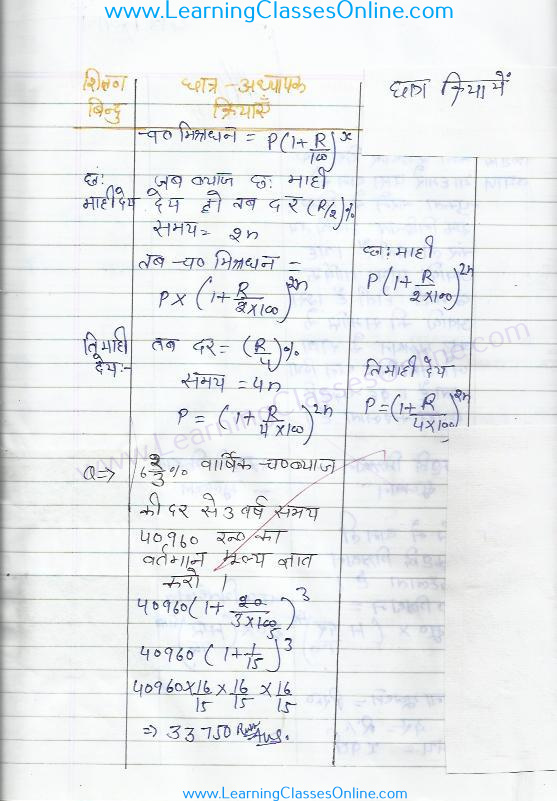 www.LearningClassesOnline.com
शिक्षण बिन्दु
छात्र-अध्यापक क्रियाएँ
छात्र क्रियायें
च० मिश्रधन = P(1+R/100)^x
छः माही देय
जब ब्याज छः माही
देय हो तब दर (R/2)%
समय = 2n
तब च० मिश्रधन =
P × (1+R/2×100)^2n
छः माही
P(1+R/2×100)^2n
तिमाही देय:-
तब दर = (R/4)%
समय = 4n
P = (1+R/4×100)^2n
तिमाही देय
P = (1+R/4×100)^2n
www.LearningClassesOnline.com
Q⇒ 6 2/3% वार्षिक च० ब्याज
की दर से 3 वर्ष समय
40,960 रू० का
वर्तमान मूल्य ज्ञात
करो ।
40960(1+20/3×100)^3
5
40960 (1+1/15)^3
40960×16/15 × 16/15 × 16/15
⇒ 33750 Ans.
www.LearningClassesOnline.com